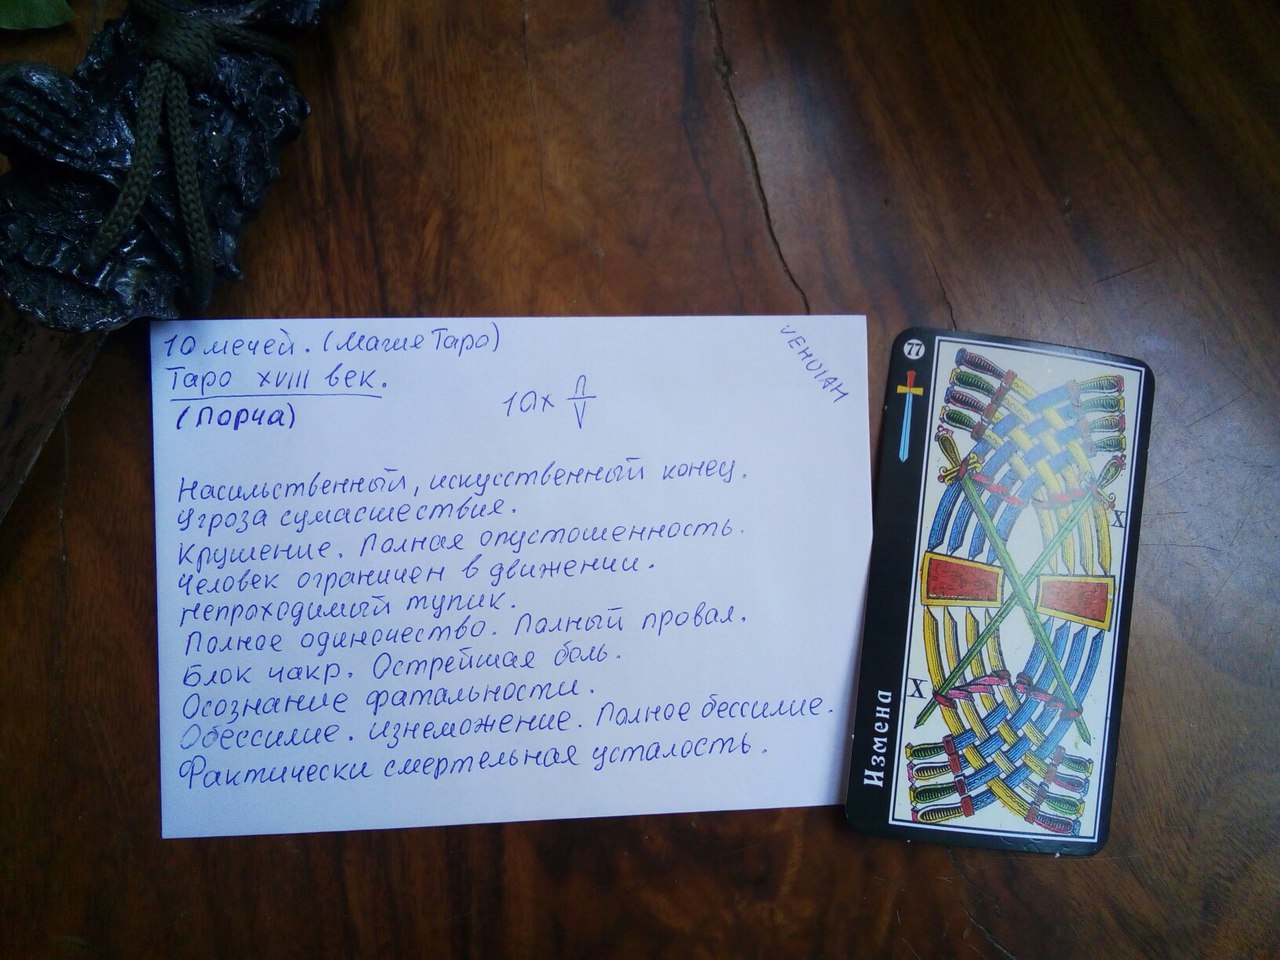 10 мечей. (Магия Таро)
Таро XVIII век.
(Порча)
VEHUIAH
Насильственный, искусственный конец.
Угроза сумасшествия.
Крушение. Полная опустошенность.
Человек ограничен в движении.
Непроходимый тупик.
Полное одиночество. Полный провал.
Блок чакр. Острейшая боль.
Осознание фатальности.
Обессилие. Изнеможение. Полное бессилие.
Фактически смертельная усталость.
77
X
X
Измена